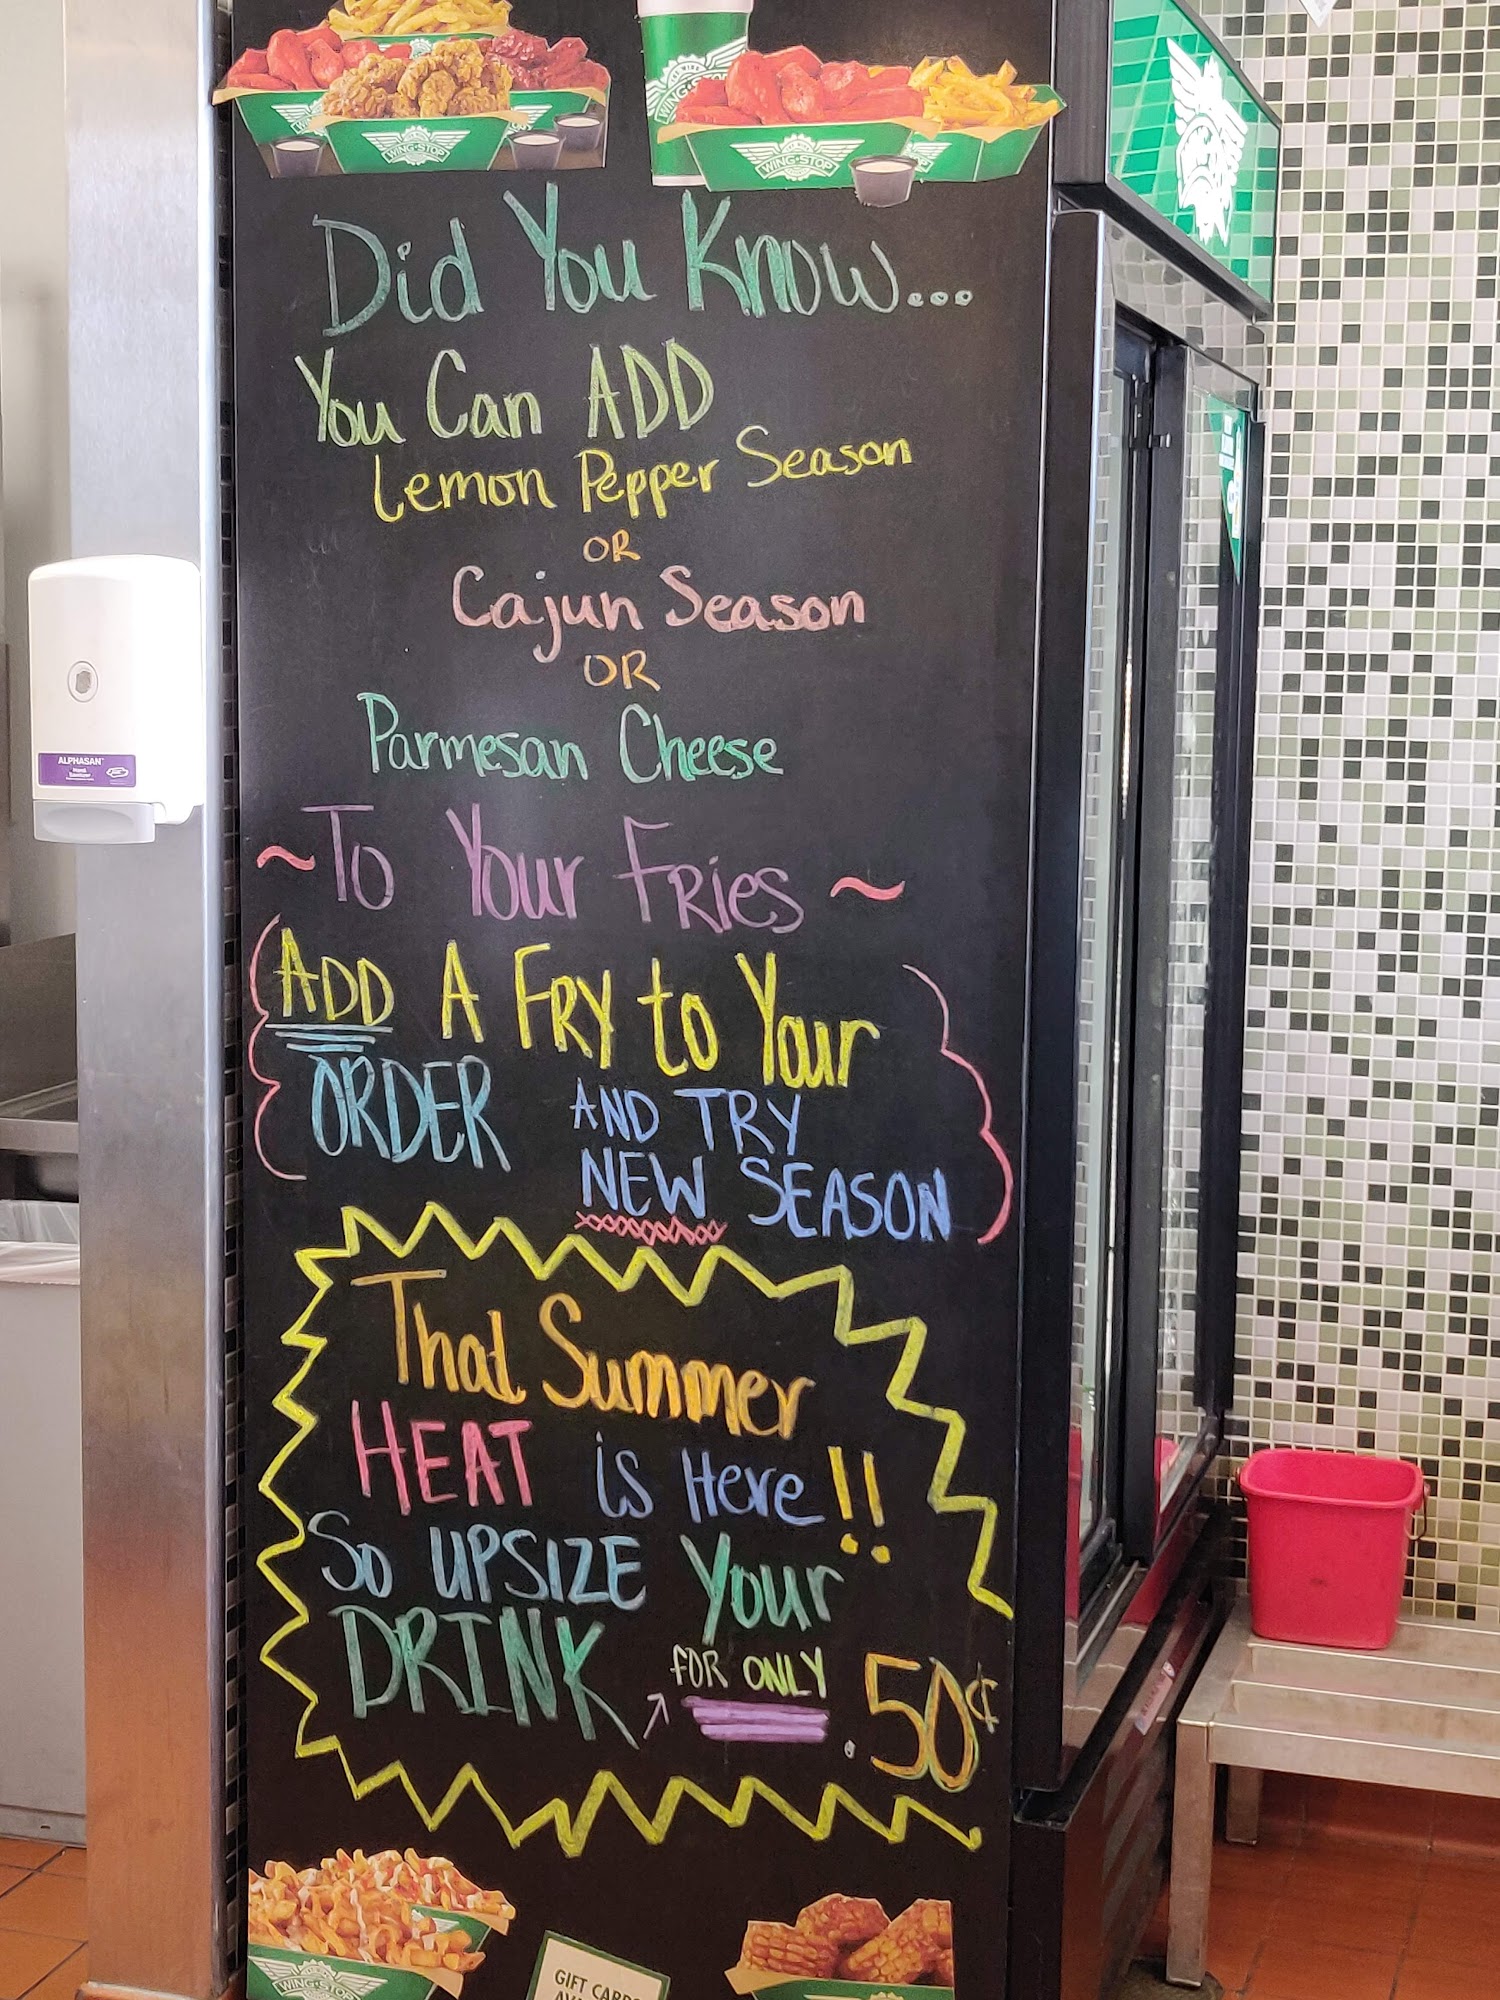 WING·STOP
WING·STOP
Did You Know...
You Can ADD
Lemon Pepper Season
OR
Cajun Season
OR
Parmesan Cheese
~To Your Fries~
ADD A FRY to Your
ORDER AND TRY
NEW SEASON
That Summer
HEAT is Here!!
So UPSIZE Your
DRINK FOR ONLY .50¢
WING·STOP
GIFT CARDS
ALPHASAN
Hand
Sanitizer